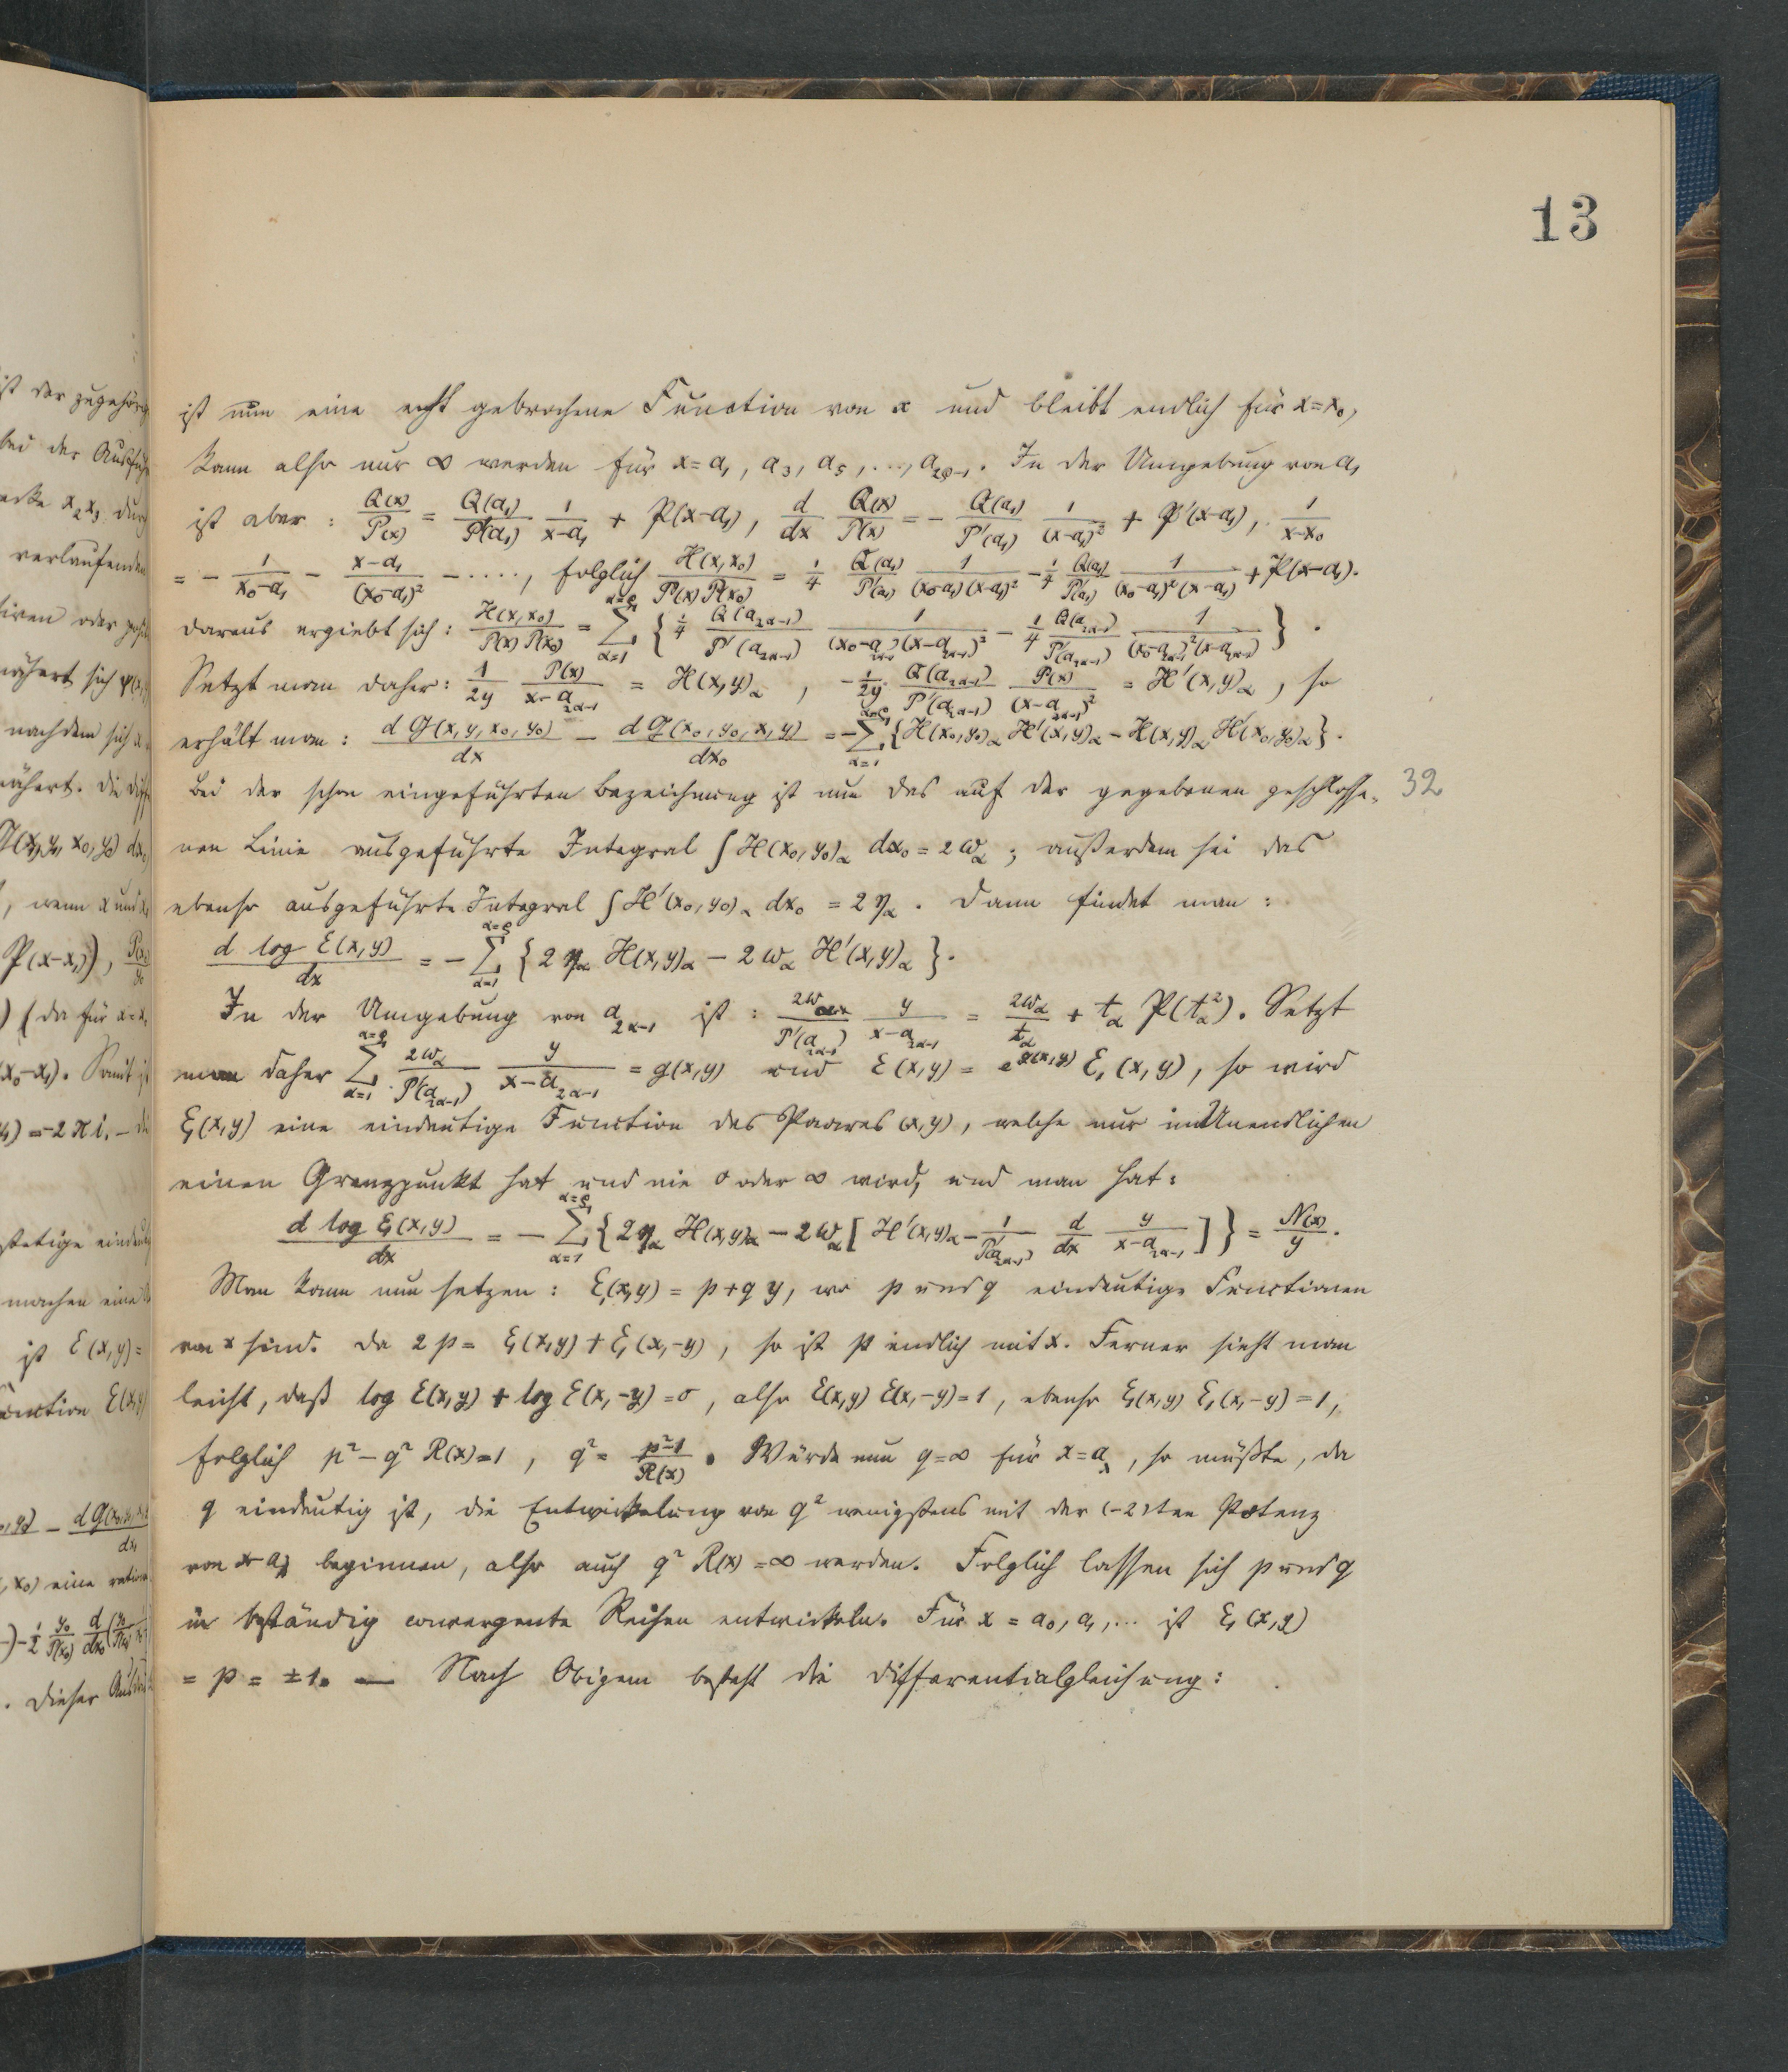 13
ist nun eine echt gebrochene Function von x und bleibt endlich für x=x₀,
kann also nur ∞ werden für x=a₁, a₃, a₅, ..., a_{2ρ-1}. In der Umgebung von a₁
ist aber: Q(x)/P(x) = Q(a₁)/P'(a₁) 1/(x-a₁) + 𝔓(x-a₁), d/dx Q(x)/P(x) = - Q(a₁)/P'(a₁) 1/(x-a₁)² + 𝔓'(x-a₁), 1/(x-x₀)
= - 1/(x₀-a₁) - (x-a₁)/(x₀-a₁)² - ...., folglich H(x,x₀)/(P(x)P(x₀)) = 1/4 Q(a₁)/P'(a₁) 1/((x₀-a₁)(x-a₁)²) - 1/4 Q(a₁)/P'(a₁) 1/((x₀-a₁)²(x-a₁)) + 𝔓(x-a₁).
Daraus ergiebt sich: H(x,x₀)/(P(x)P(x₀)) = Σ_{α=1}^{α=ρ} { 1/4 Q(a_{2α-1})/P'(a_{2α-1}) 1/((x₀-a_{2α-1})(x-a_{2α-1})²) - 1/4 Q(a_{2α-1})/P'(a_{2α-1}) 1/((x₀-a_{2α-1})²(x-a_{2α-1})) }.
Setzt man daher: 1/2y P(x)/(x-a_{2α-1}) = H(x,y)_α, - 1/2y Q(a_{2α-1})/P'(a_{2α-1}) P(x)/(x-a_{2α-1})² = H'(x,y)_α, so
erhält man: dG(x,y,x₀,y₀)/dx - dG(x₀,y₀,x,y)/dx₀ = - Σ_{α=1}^{α=ρ} {H(x₀,y₀)_α H'(x,y)_α - H(x,y)_α H'(x₀,y₀)_α}.
Bei der schon eingeführten Bezeichnung ist nun das auf der gegebenen geschlosse- 32
nen Linie ausgeführte Integral ∫H(x₀,y₀)_α dx₀ = 2ω_α; außerdem sei das
ebenso ausgeführte Integral ∫H'(x₀,y₀)_α dx₀ = 2η_α. Dann findet man:
d log E(x,y)/dx = - Σ_{α=1}^{α=ρ} {2η_α H(x,y)_α - 2ω_α H'(x,y)_α}.
In der Umgebung von a_{2α-1} ist: 2ω_α/P'(a_{2α-1}) y/(x-a_{2α-1}) = 2ω_α/t_α + t_α 𝔓(t_α²). Setzt
man daher Σ_{α=1}^{α=ρ} 2ω_α/P'(a_{2α-1}) y/(x-a_{2α-1}) = g(x,y) und E(x,y) = e^{g(x,y)} E₁(x,y), so wird
E₁(x,y) eine eindeutige Function des Paares (x,y), welche nur im Unendlichen
einen Grenzpunkt hat und nie 0 oder ∞ wird, und man hat:
d log E₁(x,y)/dx = - Σ_{α=1}^{α=ρ} {2η_α H(x,y)_α - 2ω_α [H'(x,y)_α - 1/P'(a_{2α-1}) d/dx y/(x-a_{2α-1})]} = N(x)/y.
Man kann nun setzen: E₁(x,y) = p+qy, wo p und q eindeutige Functionen
von x sind. Da 2p = E₁(x,y) + E₁(x,-y), so ist p endlich mit x. Ferner sieht man
leicht, daß log E(x,y) + log E(x,-y) = 0, also E(x,y) E(x,-y) = 1, ebenso E₁(x,y) E₁(x,-y) = 1,
folglich p² - q² R(x) = 1, q² = (p²-1)/R(x). Würde nun q=∞ für x=a_λ, so müßte, da
q eindeutig ist, die Entwickelung von q² wenigstens mit der (-2)ten Potenz
von x-a_λ beginnen, also auch q² R(x) = ∞ werden. Folglich lassen sich p und q
in beständig convergente Reihen entwickeln. Für x = a₀, a₁, ... ist E₁(x,y)
= p = ±1. — Nach Obigem besteht die Differentialgleichung: